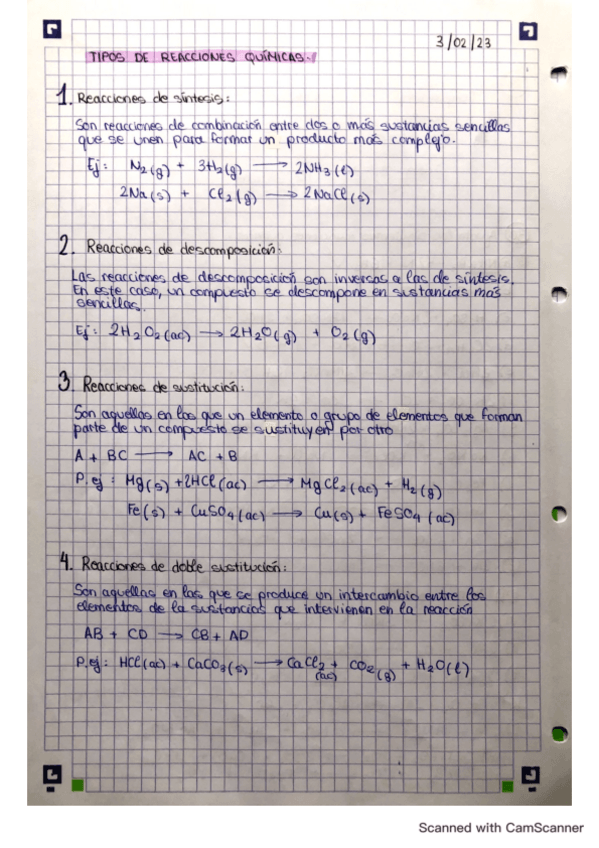 3/02/23
TIPOS DE REACCIONES QUÍMICAS.
1. Reacciones de síntesis:
Son reacciones de combinación entre dos o más sustancias sencillas
que se unen para formar un producto más complejo.
Ej: N₂(g) + 3H₂(g) → 2NH₃(l)
2Na(s) + Cl₂(g) → 2NaCl(s)
2. Reacciones de descomposición:
Las reacciones de descomposición son inversas a las de síntesis.
En este caso, un compuesto se descompone en sustancias más
sencillas.
Ej: 2H₂O₂(ac) → 2H₂O(g) + O₂(g)
3. Reacciones de sustitución:
Son aquellas en las que un elemento o grupo de elementos que forman
parte de un compuesto se sustituyen por otro
A + BC → AC + B
P.ej: Mg(s) + 2HCl(ac) → MgCl₂(ac) + H₂(g)
Fe(s) + CuSO₄(ac) → Cu(s) + FeSO₄(ac)
4. Reacciones de doble sustitución:
Son aquellas en las que se produce un intercambio entre los
elementos de la sustancias que intervienen en la reacción
AB + CD → CB + AD
P.ej: HCl(ac) + CaCO₃(s) → CaCl₂(ac) + CO₂(g) + H₂O(l)
Scanned with CamScanner